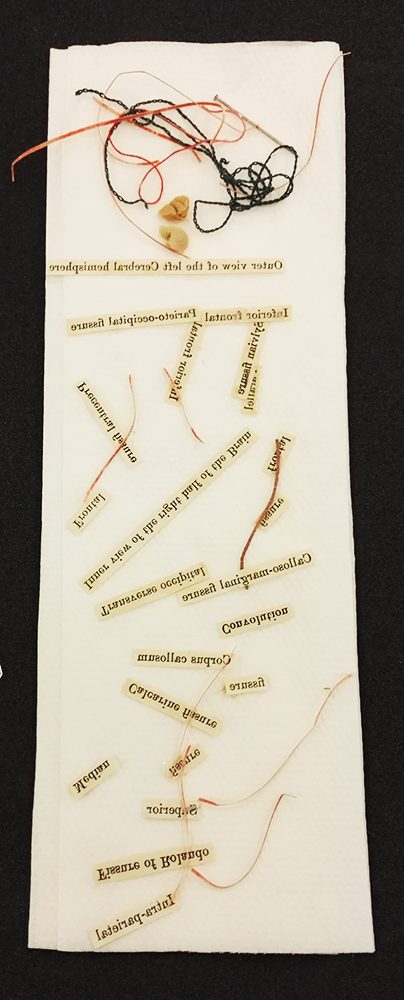 Outer view of the left Cerebral hemisphere
Parieto-occipital fissure
Inferior frontal
Inferior frontal
Sylvian fissure
Parallel
Precentral fissure
Frontal
Frontal
fissure
Inner view of the right half of the Brain
Transverse occipital
Calloso-marginal fissure
Convolution
Corpus callosum
fissure
Calcarine fissure
fissure
Median
Superior
Fissure of Rolando
Intra-parietal